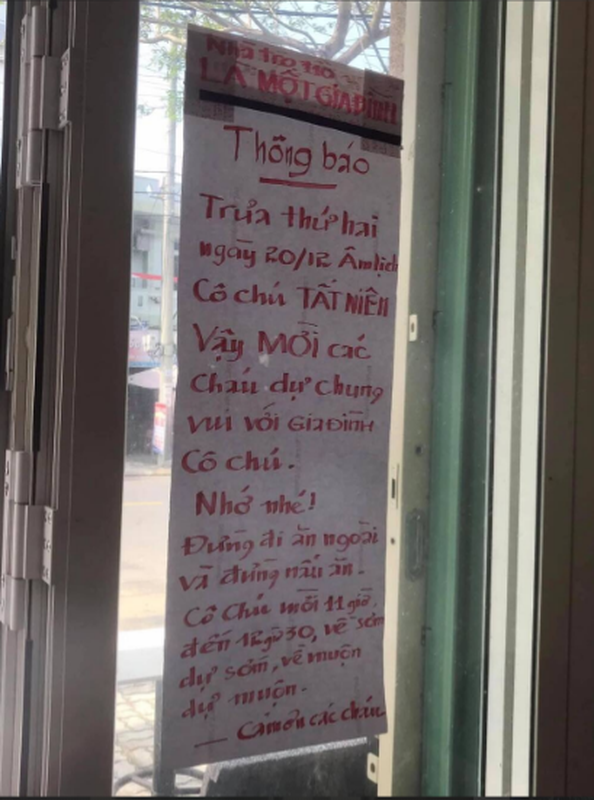 Nhà trọ
LÀ MỘT GIA ĐÌNH
Thông báo
Trưa thứ hai
ngày 20/12 Âm lịch
Cô chú TẤT NIÊN
Vậy MỜI các
cháu dự chung
vui với GIA ĐÌNH
Cô chú.
Nhớ nhé!
Đừng đi ăn ngoài
và đừng nấu ăn.
Cô Chú mời 11 giờ
đến 12giờ30, về sớm
dự sớm, về muộn
dự muộn.
— Cảm ơn các cháu